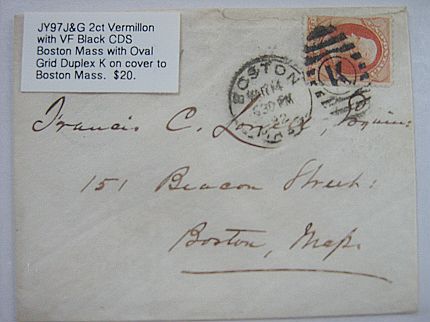 JY97J&G 2ct Vermillon
with VF Black CDS
Boston Mass with Oval
Grid Duplex K on cover to
Boston Mass. $20.
BOSTON
MAR 14
6 30 PM
K
Francis C.
151 Beacon Street.
Boston, Mass.